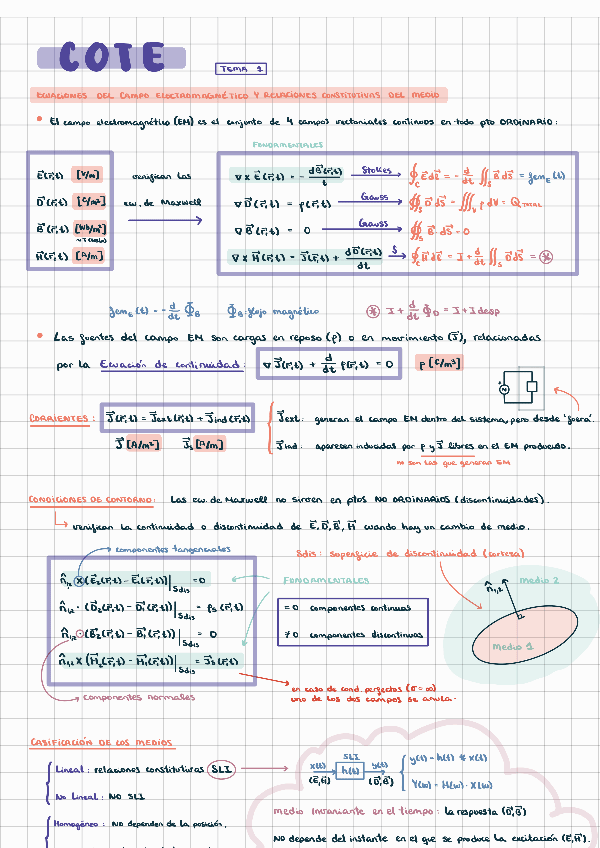 COTE
TEMA 1
ECUACIONES DEL CAMPO ELECTROMAGNÉTICO Y RELACIONES CONSTITUTIVAS DEL MEDIO
• El campo electromagnético (EM) es el conjunto de 4 campos vectoriales continuos en todo pto ORDINARIO:
FUNDAMENTALES
E⃗(r⃗,t) [V/m]
D⃗(r⃗,t) [C/m²]
B⃗(r⃗,t) [Wb/m²]
H⃗(r⃗,t) [A/m]
verifican las
ecu. de Maxwell
∇ x E⃗(r⃗,t) = - dB⃗(r⃗,t)/t Stokes ∮c E⃗dl⃗ = - d/dt ∬s B⃗ds⃗ = fem_e(t)
∇D⃗(r⃗,t) = ρ(r⃗,t) Gauss ∯s D⃗ds⃗ = ∭v ρ dV = Q TOTAL
∇B⃗(r⃗,t) = 0 Gauss ∯s B⃗ds⃗ = 0
∇ x H⃗(r⃗,t) = J⃗(r⃗,t) + dD⃗(r⃗,t)/dt S ∮c H⃗dl⃗ = I + d/dt ∬s D⃗ds⃗ = ⊛
fem_e(t) = - d/dt Φ_B Φ_B: flujo magnético ⊛ I + d/dt Φ_D = I + I desp
• Las fuentes del campo EM son cargas en reposo (ρ) o en movimiento (J⃗), relacionadas
por la Ecuación de continuidad: ∇ J⃗(r⃗,t) + d/dt ρ(r⃗,t) = 0 ρ [C/m³]
CORRIENTES: J⃗(r⃗,t) = J⃗ext(r⃗,t) + J⃗ind(r⃗,t)
J⃗ [A/m²] J⃗s [A/m]
J⃗ext: generan el campo EM dentro del sistema, pero desde 'fuera'.
J⃗ind: aparecen inducidas por ρ y J⃗ libres en el EM producido.
no son las que generan EM
CONDICIONES DE CONTORNO: Las ecu. de Maxwell no sirven en ptos NO ORDINARIOS (discontinuidades).
verifican la continuidad o discontinuidad de E⃗, D⃗, B⃗, H⃗ cuando hay un cambio de medio.
componentes tangenciales
n̂₁,₂ x (E⃗₂(r⃗,t) - E⃗₁(r⃗,t))|Sdis = 0
n̂₁,₂ · (D⃗₂(r⃗,t) - D⃗₁(r⃗,t))|Sdis = ρs(r⃗,t)
n̂₁,₂ · (B⃗₂(r⃗,t) - B⃗₁(r⃗,t))|Sdis = 0
n̂₁,₂ x (H⃗₂(r⃗,t) - H⃗₁(r⃗,t))|Sdis = J⃗s(r⃗,t)
componentes normales
Sdis: superficie de discontinuidad (corteza)
FUNDAMENTALES
= 0 componentes continuas
≠ 0 componentes discontinuas
en caso de cond. perfectos (σ = ∞)
uno de los dos campos se anula.
n̂₁,₂
Medio 2
Medio 1
CASIFICACIÓN DE LOS MEDIOS
Lineal: relaciones constitutivas SLI
No Lineal: NO SLI
Homogéneo: NO dependen de la posición.
x(t) SLI y(t)
(E⃗,H⃗) h(t) (D⃗,B⃗)
y(t) = h(t) * x(t)
Y(w) = H(w) · X(w)
medio invariante en el tiempo: la respuesta (D⃗,B⃗)
NO depende del instante en el que se produce la excitación (E⃗,H⃗).